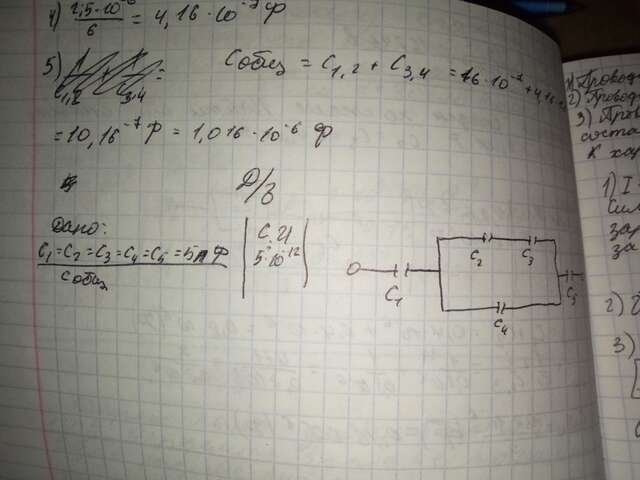 4) 2,5·10⁻⁶ / 6 = 4,16·10⁻⁷ Ф
5) C1,2 3,4 = Cобщ = C1,2 + C3,4 = 16·10⁻⁷ + 4,16
= 10,16⁻⁷ Ф = 1,016·10⁻⁶ Ф
Д/З
Дано:
C1=C2=C3=C4=C5=5пФ
Cобщ
С.И
5·10⁻¹²
C1
C2
C3
C4
C5
1) Провод
2) Провод
3) Про
соста
к хар
1) I
Сил
зар
за
2)
3)